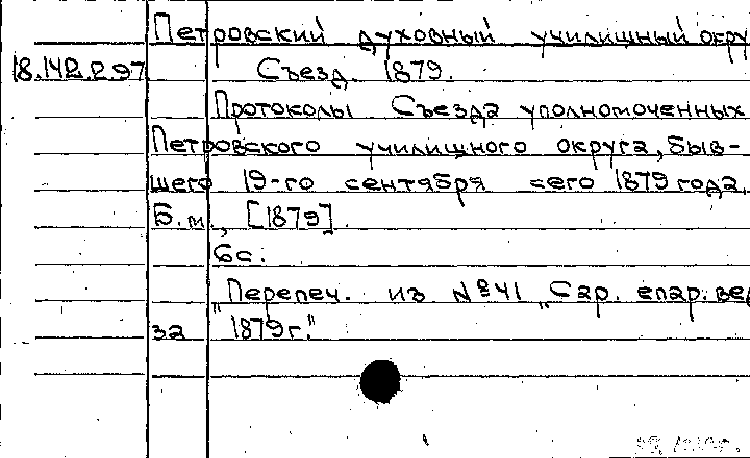 Петровский духовный училищный окру
18.142.2.97 Съезд. 1879.
Протоколы Съезда уполномоченных
Петровского училищного округа, быв-
шего 19-го сентября сего 1879 года.
Б.м., [1879]
6с.
"Перепеч. из №41 „Сар. епар. вед
за 1879г."